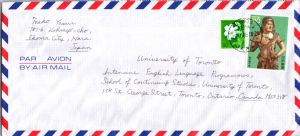 Naoko Yasui
781-6 Kokuyo-cho,
Ikoma City, Nara
Japan
PAR AVION
BY AIR MAIL
University of Toronto
Intensive English Language Programmes,
School of Continuing Studies, University of Toronto,
158 St. George Street, Toronto, Ontario, Canada M5S 2V8